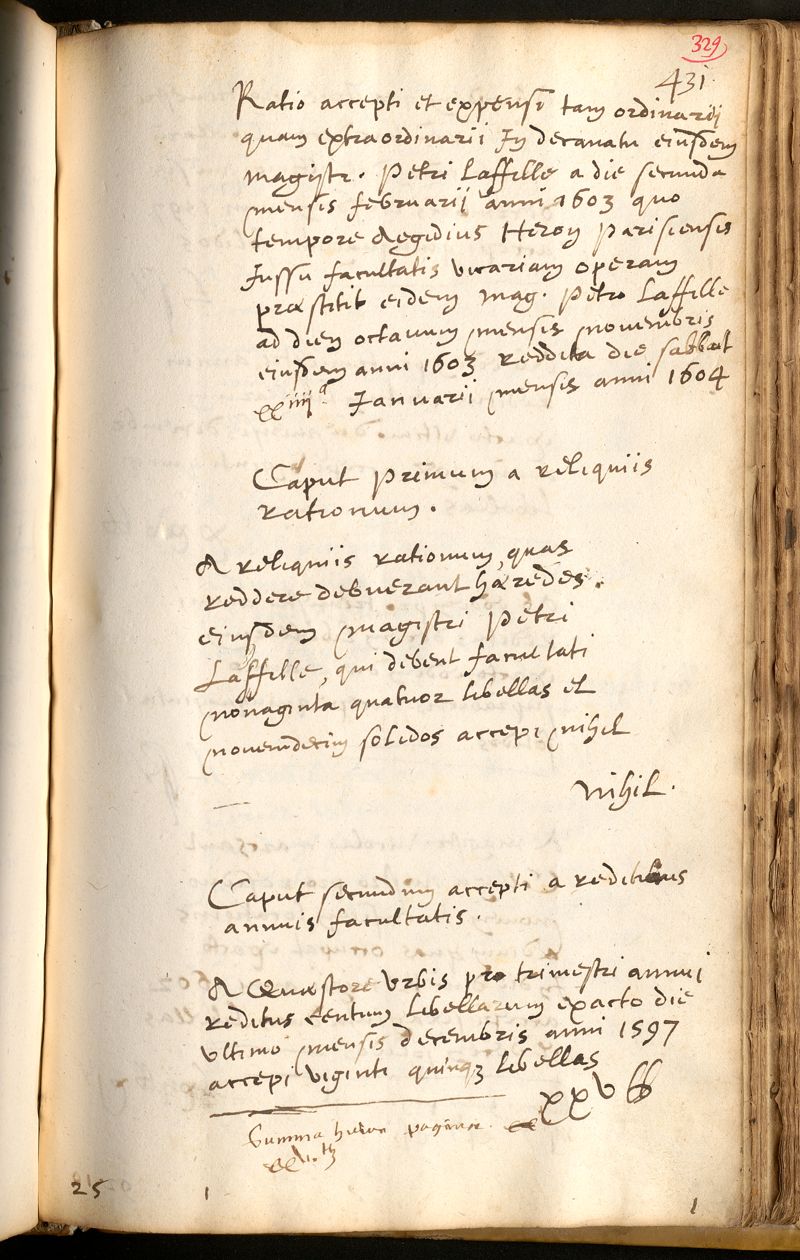 329
431
Ratio accepti et expensi tam ordinarij
quam extraordinarii In decanatu eiusdem
magistr. Petri Laffille a die secunda
mensis februarij anni 1603 quo
tempore Aegidius Heron Parisiensis
Jussu facultatis vicariam operam
præstitit eidem Mag. Petro Laffille
ad diem octavum mensis novembris
eiusdem anni 1603 reddita die sabbat
xxiiijª Januarii mensis anni 1604
Caput Primum a reliquiis
rationum.
A reliquiis rationum, quas
reddere debuerant hæredes
eiusdem magistri Petri
Laffille, qui debent facultati
nonaginta quatuor libellas et
novemdecim solidos accepi nihil
nihil.
Caput secundum accepti a reditibus
annuis facultatis.
A Quæstore Urbis pro trimestri annui
reditus centum libellarum exacto die
ultimo mensis decembris anni 1597
accepi viginti quinqȝ libellas
xxv ₶
Summa huius paginæ
xxv. ₶
25 1 1